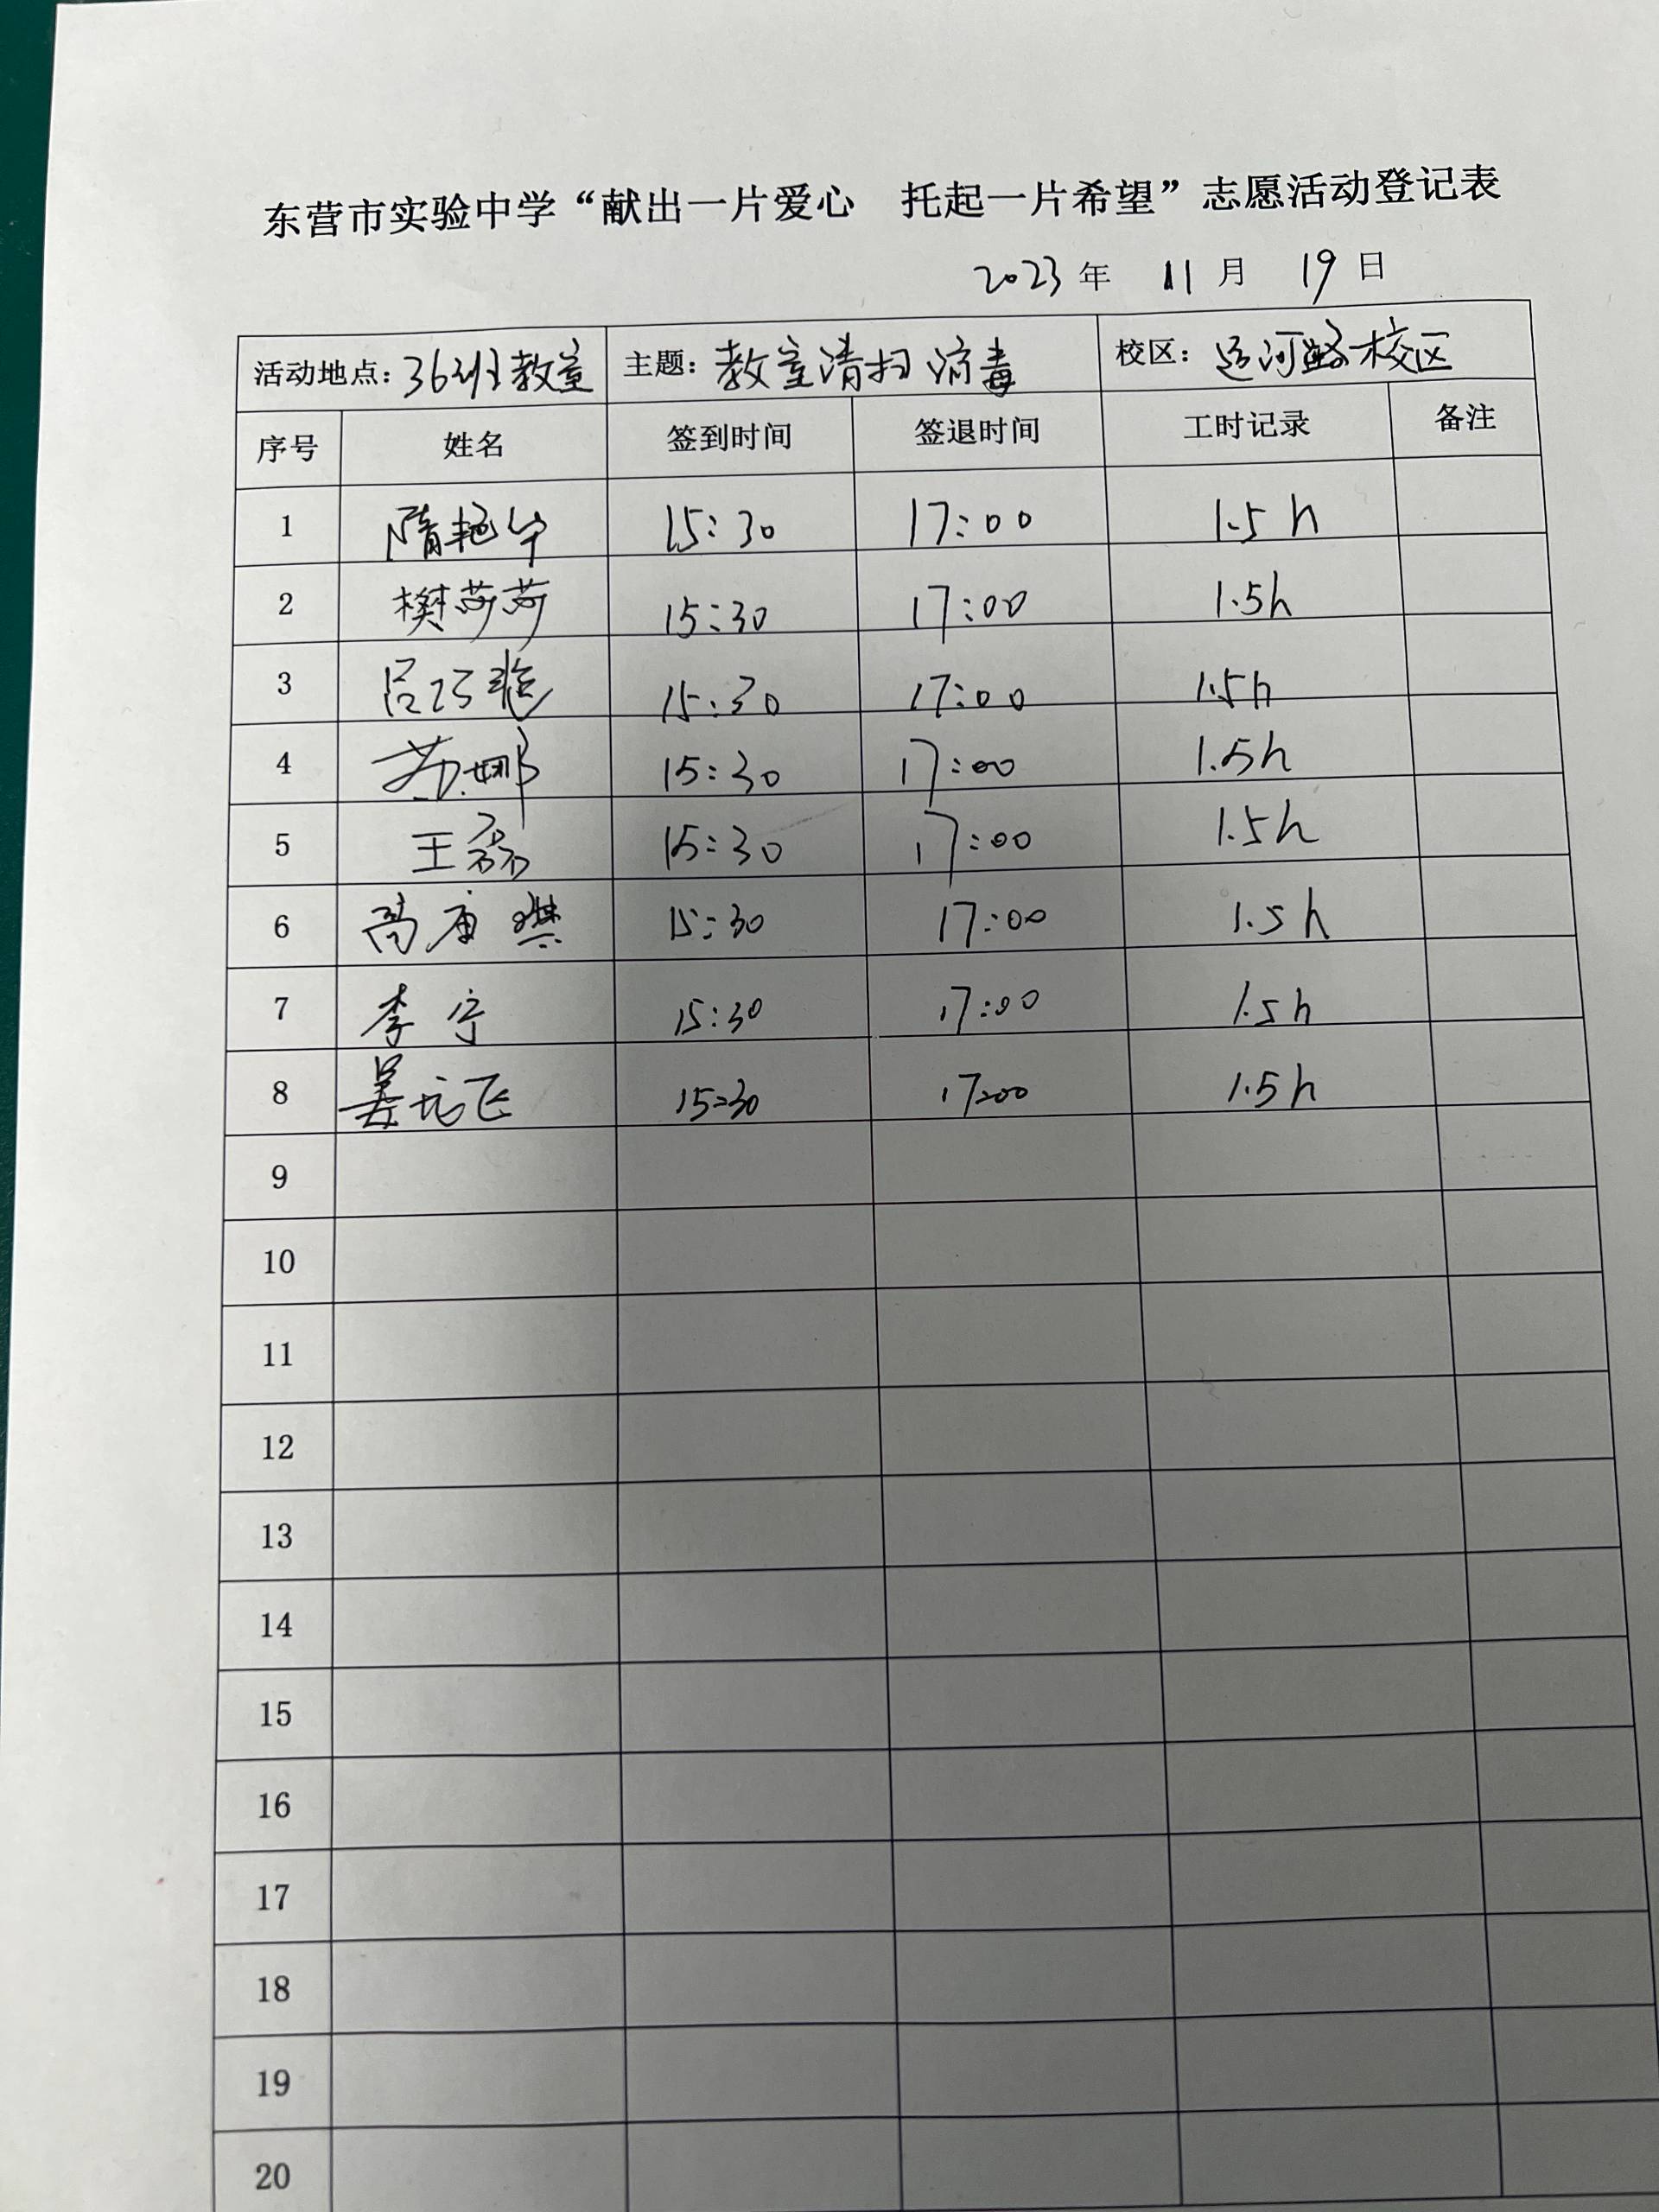 东营市实验中学“献出一片爱心 托起一片希望”志愿活动登记表
2023 年 11 月 19 日
活动地点：36班教室 主题：教室清扫消毒 校区：运河路校区
序号 姓名 签到时间 签退时间 工时记录 备注
1 隋艳华 15:30 17:00 1.5h
2 樊荷荷 15:30 17:00 1.5h
3 吕巧 15:30 17:00 1.5h
4 苏娜 15:30 17:00 1.5h
5 王磊 15:30 17:00 1.5h
6 15:30 17:00 1.5h
7 李宁 15:30 17:00 1.5h
8 姜 飞 15:30 17:00 1.5h
9
10
11
12
13
14
15
16
17
18
19
20